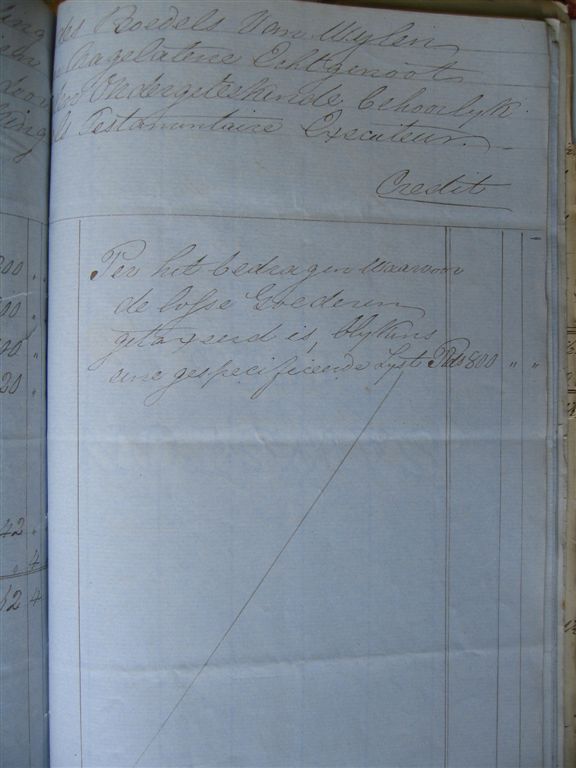 des Boedels Van Wylen
Nagelatene Echtgenoot
door Ondergeteekende behoorlyk
als Testamentaire Executeur.
Credit
Per het bedragen Waarvoor
de losse Goederen
getaxeerd is, blykens
eene gespecificeerde Lyst Rds 800 " "
00 "
00 "
00 "
20 "
42 "
" 4
12 4